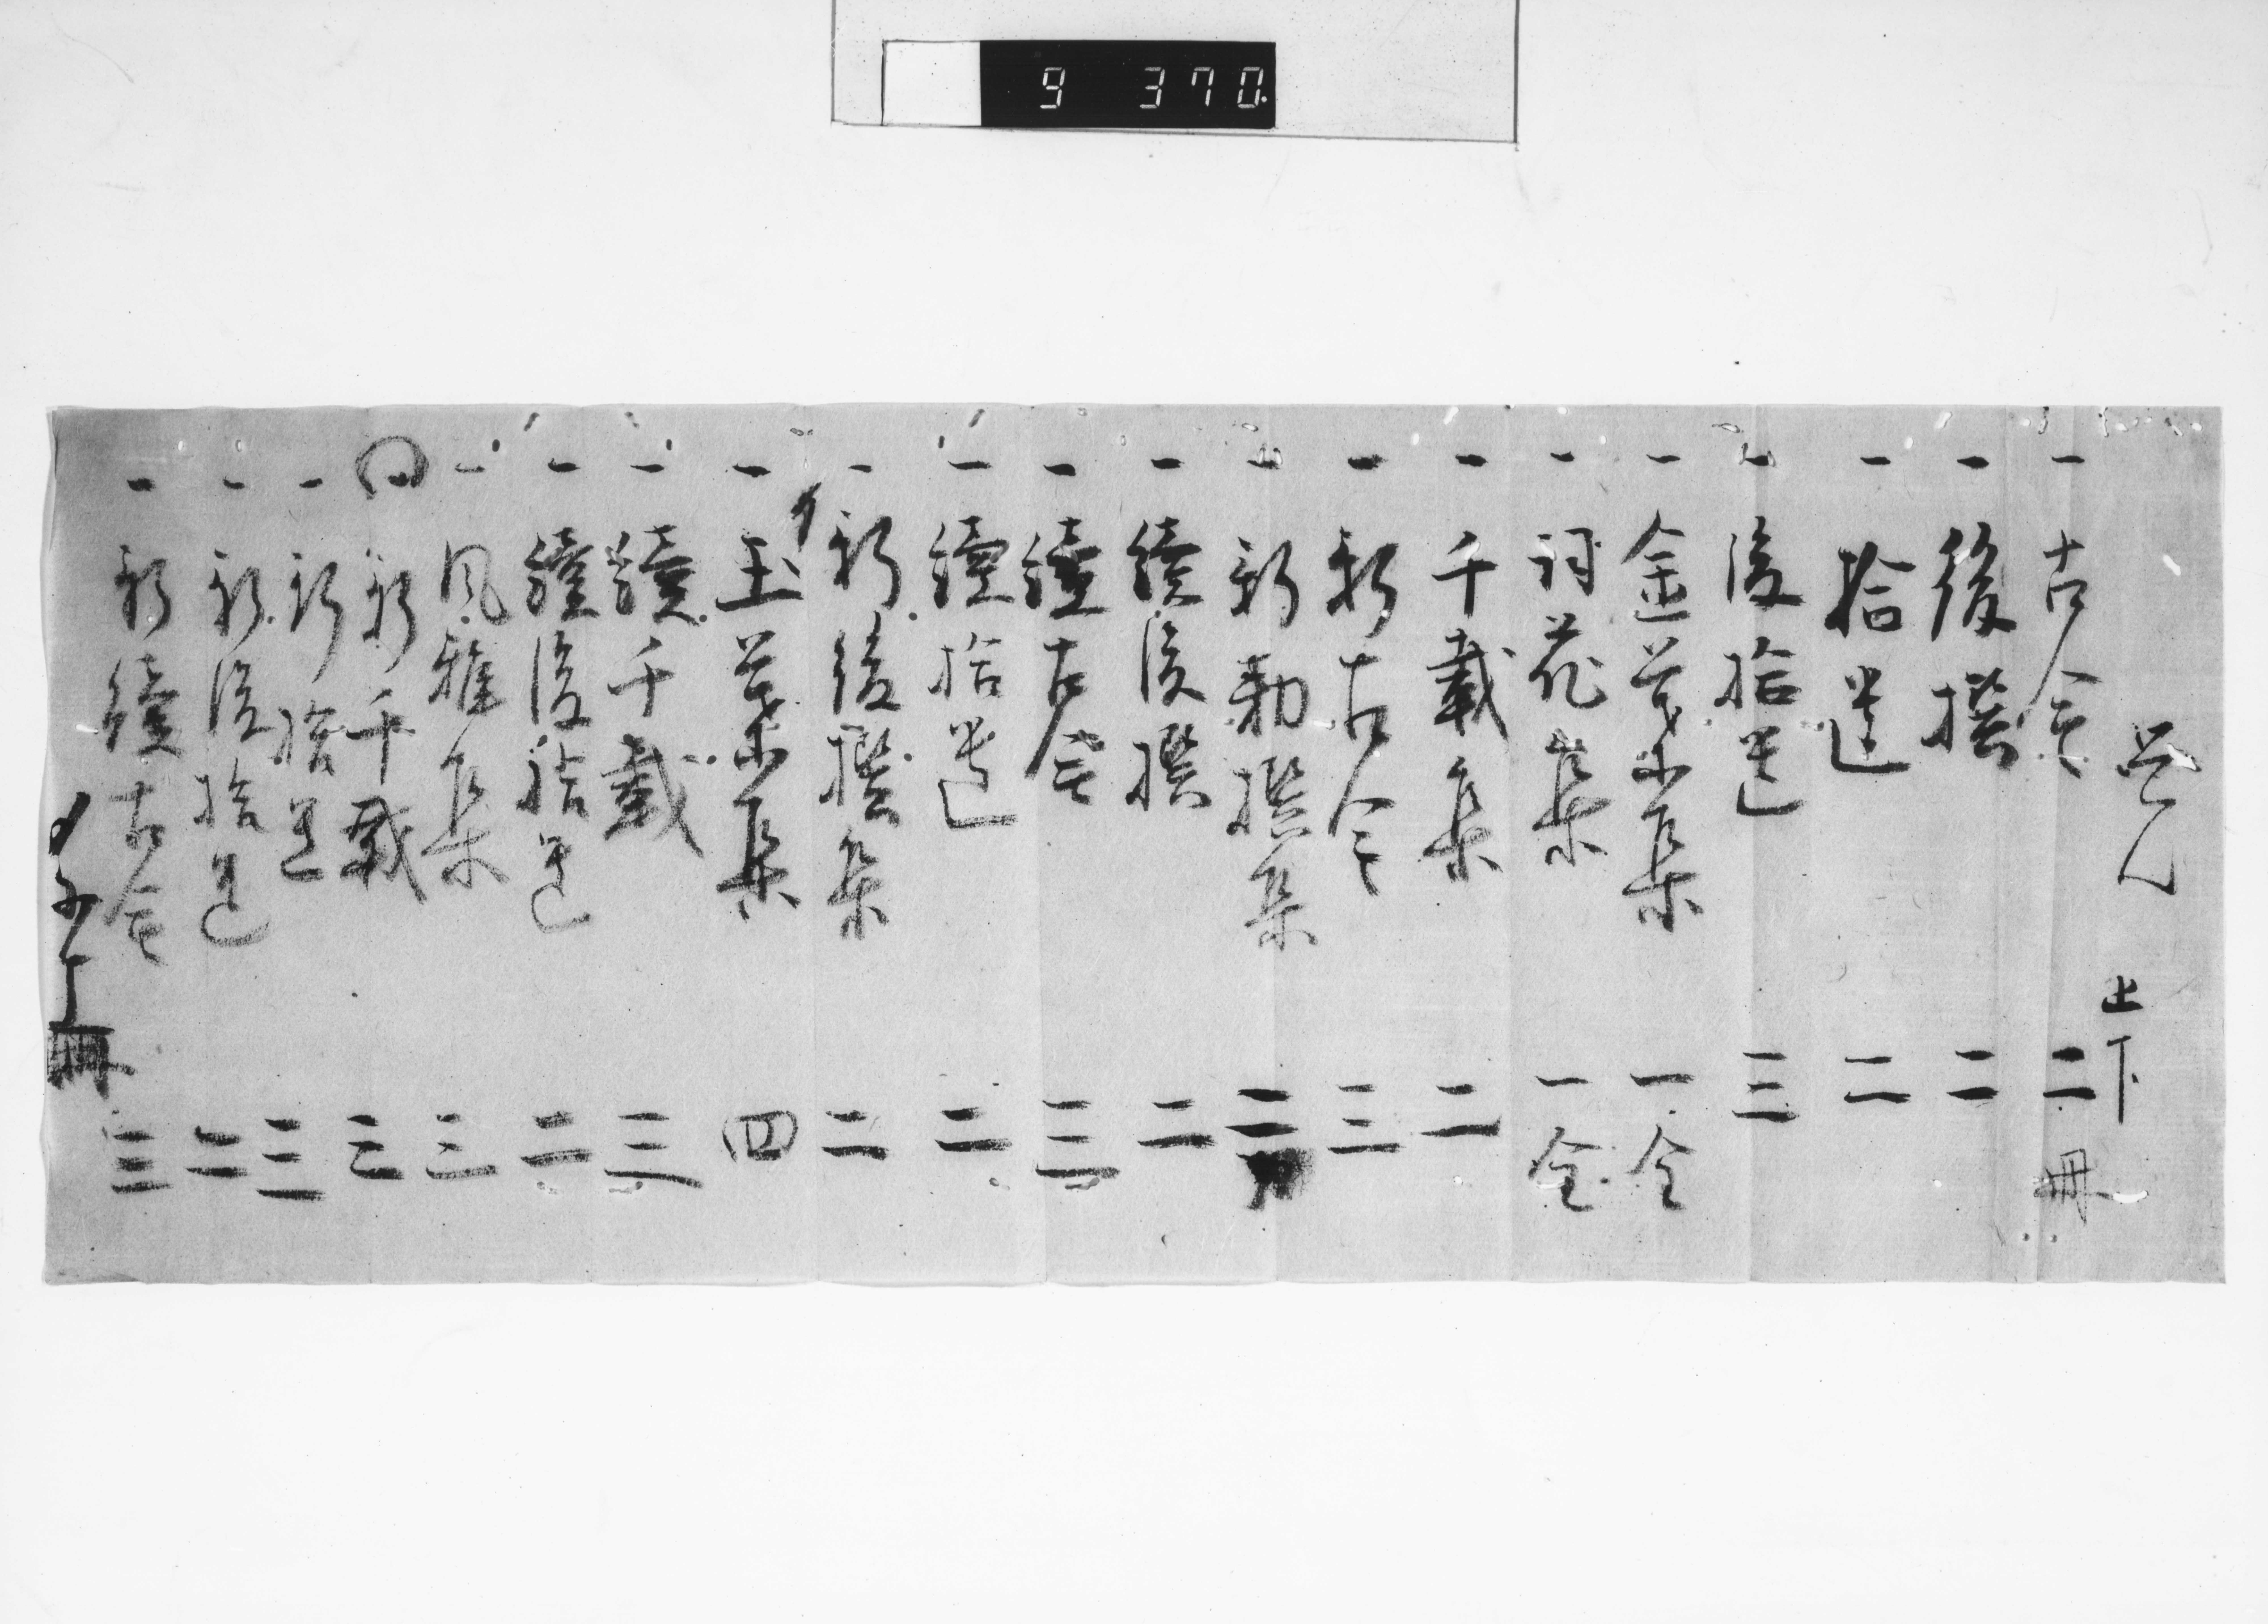 9 370.
覚
一 古今 上下 二冊
一 後撰 二
一 拾遺 二
一 後拾遺 三
一 金葉集 一全
一 詞花集 一全
一 千載集 二
一 新古今 三
一 新勅撰集 二
一 続後撰 二
一 続古今 三
一 続拾遺 二
一 新後撰集 二
一 玉葉集 四
一 続千載 三
一 続後拾遺 二
一 風雅集 三
一 新千載 三
一 新拾遺 三
一 新後拾遺 二
一 新続古今 三
冊